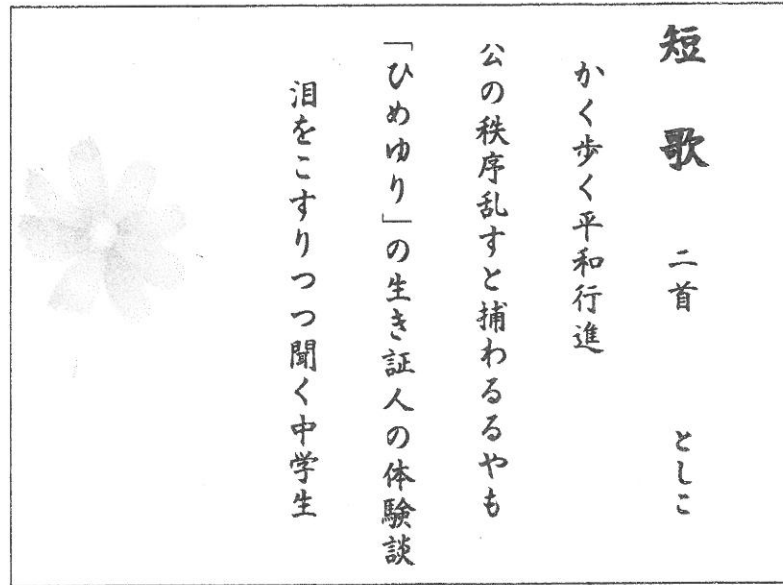 短歌 二首 としこ
かく歩く平和行進
公の秩序乱すと捕わるるやも
「ひめゆり」の生き証人の体験談
泪をこすりつつ聞く中学生